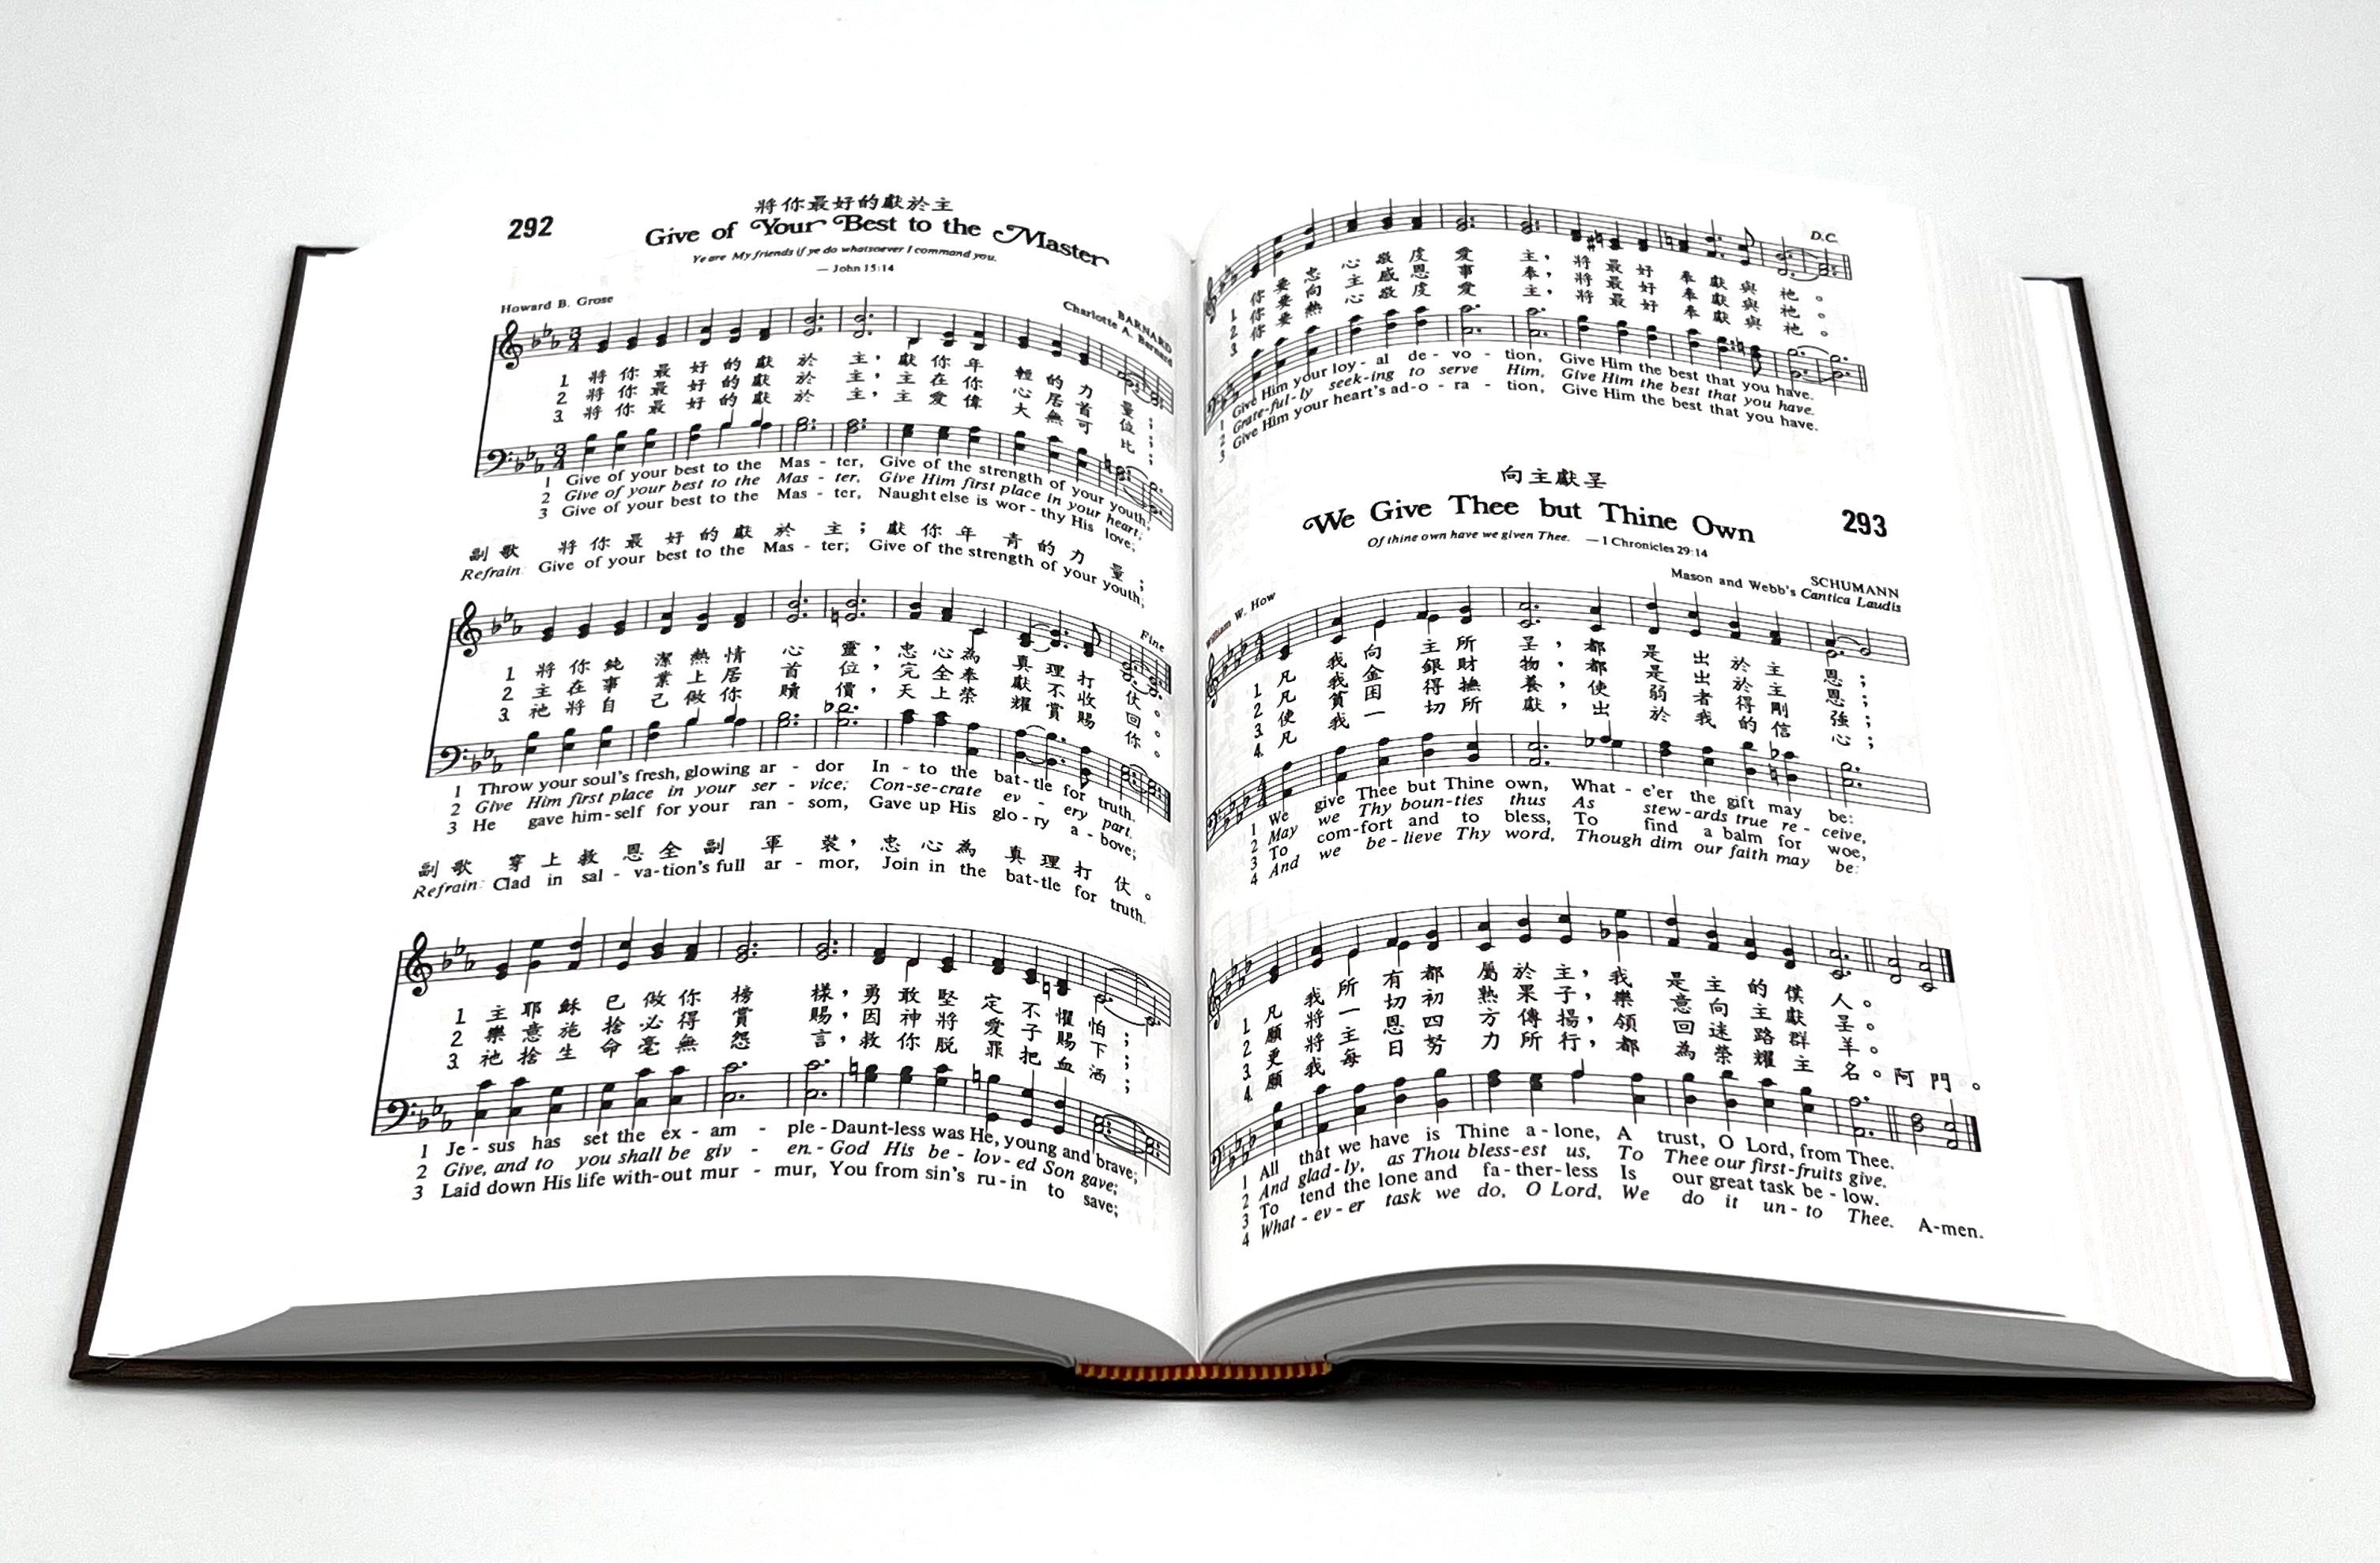 292
將你最好的獻於主
Give of Your Best to the Master
Ye are My friends if ye do whatsoever I command you.
— John 15:14
Howard B. Grose
BARNARD
Charlotte A. Barnard
1 將你最好的獻於主，獻你年輕的力量；
2 將你最好的獻於主，主在你心居首位；
3. 將你最好的獻於主，主愛偉大無可比；
1 Give of your best to the Mas - ter, Give of the strength of your youth;
2 Give of your best to the Mas - ter, Give Him first place in your heart;
3 Give of your best to the Mas - ter, Naught else is wor - thy His love;
副歌 將你最好的獻於主；獻你年青的力量；
Refrain: Give of your best to the Mas - ter; Give of the strength of your youth;
Fine
1 將你純潔熱情心靈，忠心為真理打仗。
2 主在事業上居首位，完全奉獻不收回。
3. 祂將自己做你贖價，天上榮耀賞賜你。
1 Throw your soul's fresh, glowing ar - dor In - to the bat - tle for truth.
2 Give Him first place in your ser - vice; Con-se-crate ev - ery part.
3 He gave him-self for your ran - som, Gave up His glo - ry a - bove;
副歌 穿上救恩全副軍裝，忠心為真理打仗。
Refrain: Clad in sal - va-tion's full ar - mor, Join in the bat-tle for truth.
1 主耶穌已做你榜樣，勇敢堅定不懼怕；
2 樂意施捨必得賞賜，因神將愛子賜下；
3. 祂捨生命毫無怨言，救你脫罪把血洒；
1 Je - sus has set the ex - am - ple - Daunt-less was He, young and brave;
2 Give, and to you shall be giv - en. - God His be - lov - ed Son gave;
3 Laid down His life with-out mur - mur, You from sin's ru - in to save;
D.C.
1 你要忠心敬虔愛主，將最好奉獻與祂。
2 你要向主感恩事奉，將最好奉獻與祂。
3. 你要熱心敬虔愛主，將最好奉獻與祂。
1 Give Him your loy - al de - vo - tion, Give Him the best that you have.
2 Grate-ful-ly seek-ing to serve Him, Give Him the best that you have.
3 Give Him your heart's ad-o - ra - tion, Give Him the best that you have.
向主獻呈
We Give Thee but Thine Own
293
Of thine own have we given Thee. — 1 Chronicles 29:14
William W. How
SCHUMANN
Mason and Webb's Cantica Laudis
1. 凡我向主所呈，都是出於主恩；
2. 凡我金銀財物，都是出於主恩；
3. 使貧困得撫養，使弱者得剛強；
4. 凡我一切所獻，出於我的信心；
1 We give Thee but Thine own, What - e'er the gift may be:
2 May we Thy boun-ties thus As stew-ards true re - ceive,
3 To com-fort and to bless, To find a balm for woe,
4 And we be-lieve Thy word, Though dim our faith may be:
1. 凡我所有都屬於主，我是主的僕人。
2. 願將一切初熟果子，樂意向主獻呈。
3. 更將主恩四方傳揚，領回迷路群羊。
4. 願我每日努力所行，都為榮耀主名。阿門。
1 All that we have is Thine a - lone, A trust, O Lord, from Thee.
2 And glad-ly, as Thou bless-est us, To Thee our first-fruits give.
3 To tend the lone and fa-ther-less Is our great task be - low.
4 What - ev - er task we do, O Lord, We do it un - to Thee. A-men.